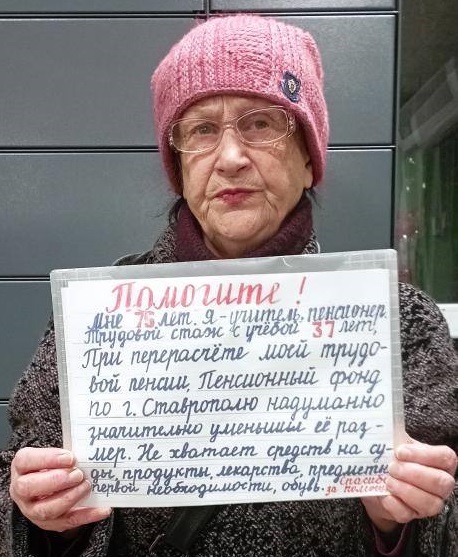 Помогите!
Мне 75 лет. Я - учитель, пенсионер.
Трудовой стаж с учёбой 37 лет.
При перерасчёте моей трудо-
вой пенсии, Пенсионный фонд
по г. Ставрополю надуманно
значительно уменьшил её раз-
мер. Не хватает средств на су-
ды, продукты, лекарства, предметы
первой необходимости, обувь.
Спасибо
за помощь